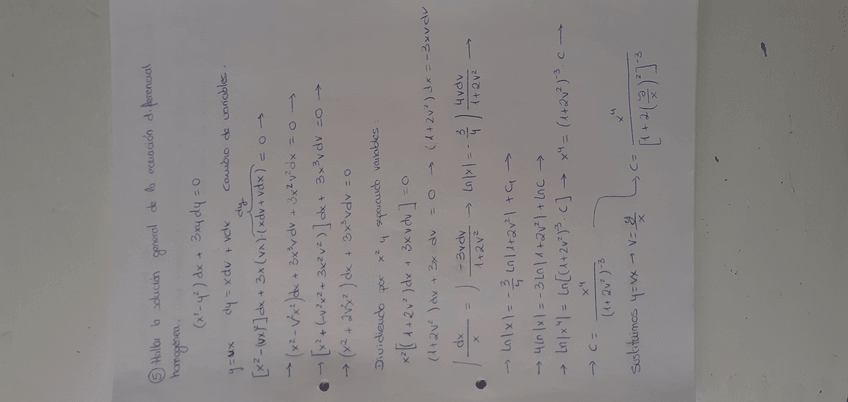 ⑤ Hallar la solución general de la ecuación diferencial
homogénea.
(x²-y²)dx + 3xydy = 0
y=vx dy = xdv + vdx cambio de variables.
[x²-(vx)²]dx + 3x(vx)(xdv+vdx) = 0 →
dy
→ (x²-v²x²)dx + 3x³vdv + 3x²v²dx = 0 →
→ [x²+(-v²x²+3x²v²)]dx + 3x³vdv = 0 →
→ (x²+2v²x²)dx + 3x³vdv = 0
Dividiendo por x² y separando variables:
x²[(1+2v²)dx + 3xvdv] = 0
(1+2v²)dx + 3x dv = 0 → (1+2v²)dx = -3xvdv
∫ dx/x = ∫ -3vdv/1+2v² → Ln|x| = -3/4 ∫ 4vdv/1+2v² →
→ Ln|x| = -3/4 Ln|1+2v²| + C₁ →
→ 4Ln|x| = -3Ln|1+2v²| + LnC →
→ Ln|x⁴| = Ln[(1+2v²)⁻³·C] → x⁴ = (1+2v²)⁻³·C →
→ C = x⁴/(1+2v²)⁻³
Sustituimos y=vx → v=y/x → C = x⁴/[1+2(y/x)²]⁻³